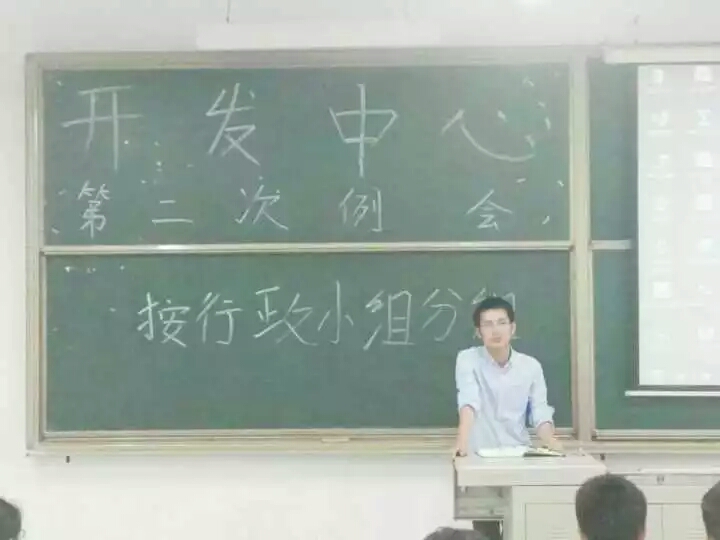 开发中心
第二次例会
按行政小组分组